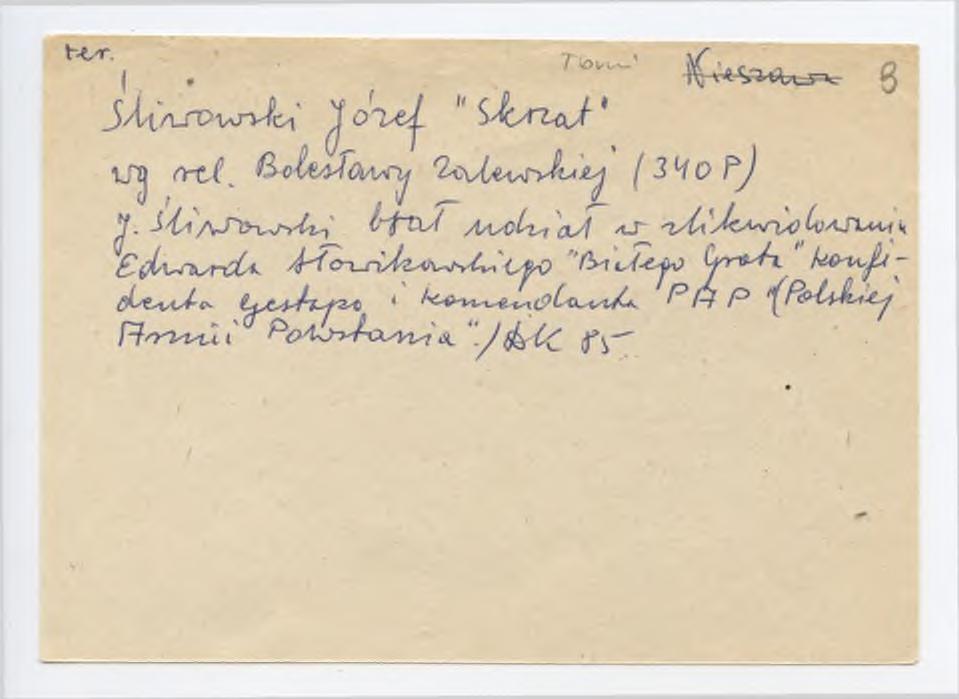 ter.
Toruń ~~Nieszawa~~ 8
Śliwowski Józef "Skrzat"
wg rel. Bolesławy Zalewskiej (340 P)
J. Śliwowski brał udział w zlikwidowaniu
Edwarda Słowikowskiego "Białego Grota" konfi-
denta gestapo i komendanta PAP "(Polskiej
Armii Powstania"./AK 85